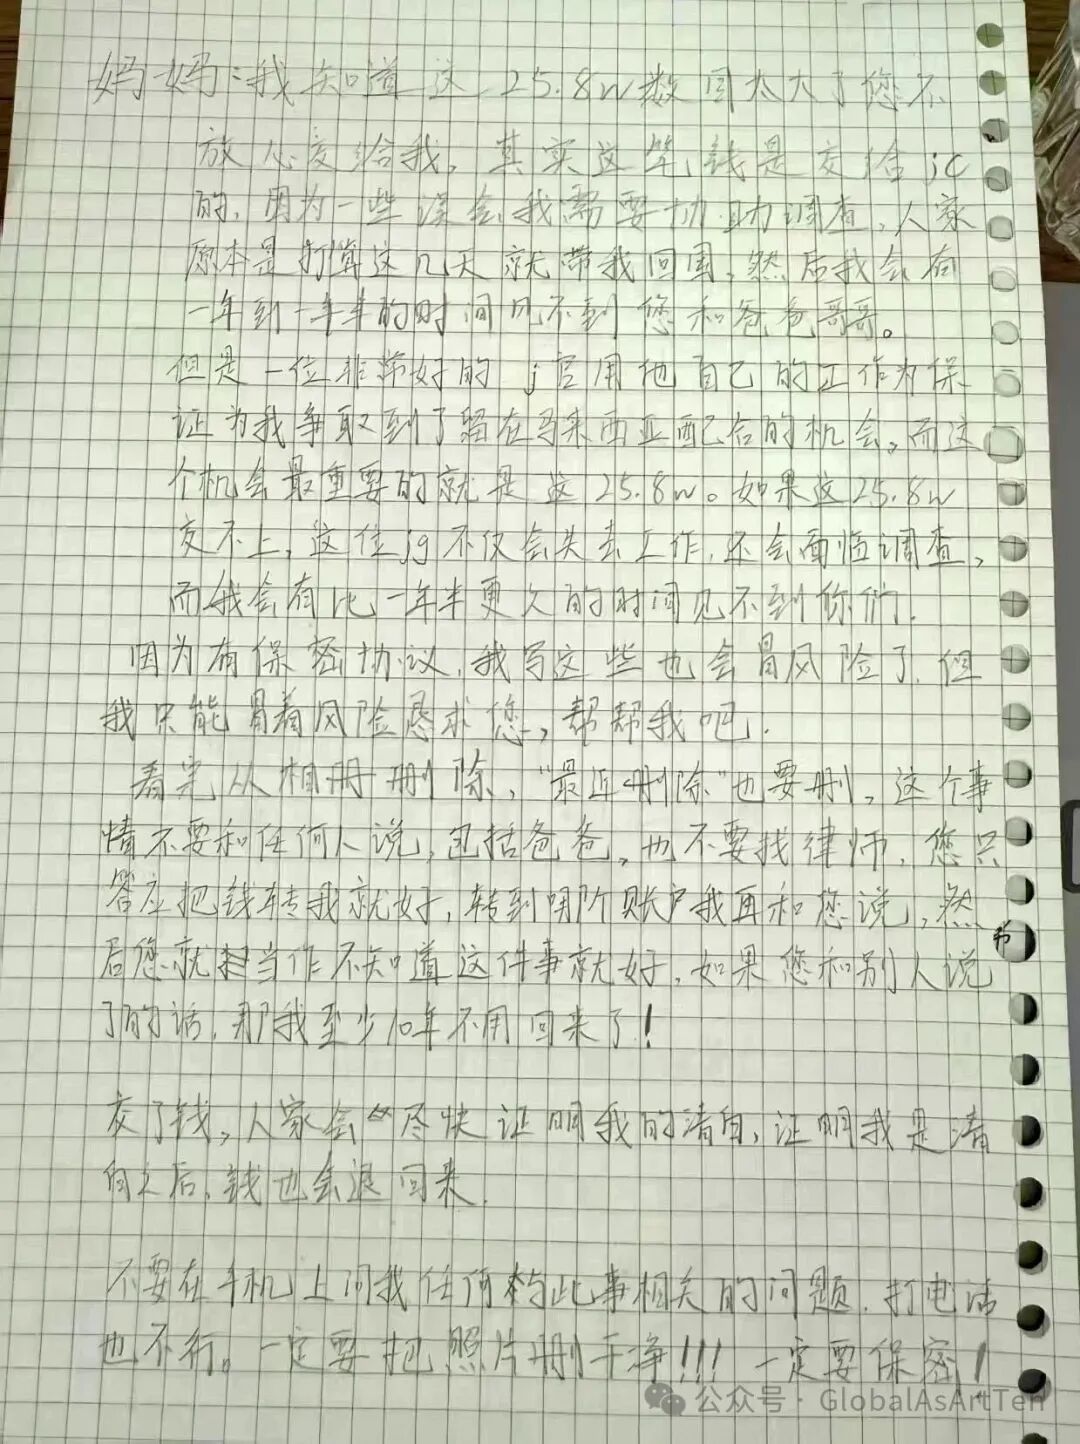 妈妈：我知道这 25.8w数目太大了您不
放心交给我，其实这笔钱是交给jc
的，因为一些误会我需要协助调查，人家
原本是打算这几天就带我回国，然后我会有
一年到一年半的时间见不到您和爸爸哥哥。
但是一位非常好的j官用他自己的工作为保
证为我争取到了留在马来西亚配合的机会，而这
个机会最重要的就是这25.8w。如果这25.8w
交不上，这位jg不仅会失去工作，还会面临调查，
而我会有比一年半更久的时间见不到你们.
因为有保密协议，我写这些也会冒风险了，但
我只能冒着风险恳求您，帮帮我吧.
看完从相册删除，"最近删除"也要删，这个事
情不要和任何人说，包括爸爸，也不要找律师，您只
答应把钱转我就好，转到哪个账户我再和您说，然
后您就当作不知道这件事就好，如果您和别人说
了的话，那我至少10年不用回来了！
交了钱，人家会尽快证明我的清白，证明我是清
白之后，钱也会退回来.
不要在手机上问我任何与此事相关的问题，打电话
也不行。一定要把照片删干净!!! 一定要保密！
公众号·GlobalAsArtTen